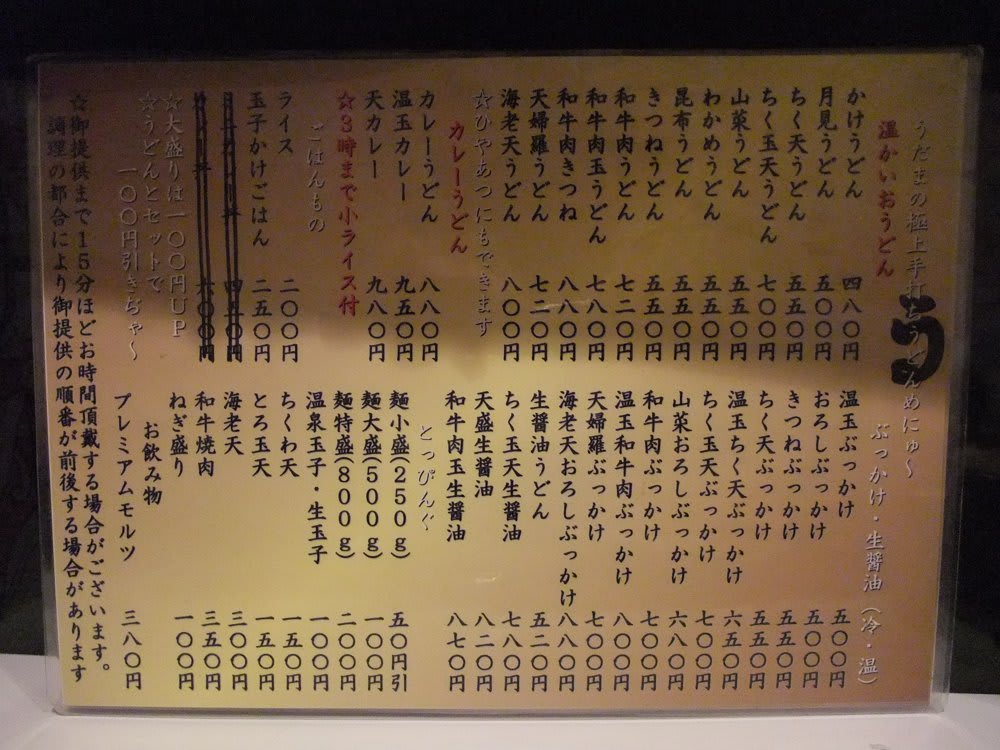 うだまの極上手打ちうどんめにゅ～
う
温かいおうどん
かけうどん 四八〇円
月見うどん 五〇〇円
ちく天うどん 五五〇円
ちく玉天うどん 七〇〇円
山菜うどん 五五〇円
わかめうどん 五五〇円
昆布うどん 五五〇円
きつねうどん 五五〇円
和牛肉うどん 七二〇円
和牛肉玉うどん 七八〇円
和牛肉きつね 八八〇円
天婦羅うどん 七二〇円
海老天うどん 八〇〇円
☆ひやあつにもできます
カレーうどん
カレーうどん 八八〇円
温玉カレー 九五〇円
天カレー 九八〇円
☆3時まで小ライス付
ごはんもの
ライス 二〇〇円
玉子かけごはん 二五〇円
ミニカレー丼 四五〇円
カレー丼 六〇〇円
☆大盛りは一〇〇円UP
☆うどんとセットで
一〇〇円引きぢゃ～
ぶっかけ・生醤油（冷・温）
温玉ぶっかけ 五五〇円
おろしぶっかけ 五〇〇円
きつねぶっかけ 五五〇円
ちく天ぶっかけ 五五〇円
温玉ちく天ぶっかけ 六五〇円
ちく玉天ぶっかけ 七〇〇円
山菜おろしぶっかけ 六八〇円
和牛肉ぶっかけ 七〇〇円
温玉和牛肉ぶっかけ 八〇〇円
天婦羅ぶっかけ 七〇〇円
海老天おろしぶっかけ 八八〇円
生醤油うどん 五二〇円
ちく玉天生醤油 七八〇円
天盛生醤油 八二〇円
和牛肉玉生醤油 八七〇円
とっぴんぐ
麺小盛(250g) 五〇円引
麺大盛(500g) 一〇〇円
麺特盛(800g) 二〇〇円
温泉玉子・生玉子 一〇〇円
ちくわ天 一五〇円
とろ玉天 一五〇円
海老天 三〇〇円
和牛焼肉 三五〇円
ねぎ盛り 一〇〇円
お飲み物
プレミアムモルツ 三八〇円
☆御提供まで15分ほどお時間頂戴する場合がございます。
調理の都合により御提供の順番が前後する場合があります